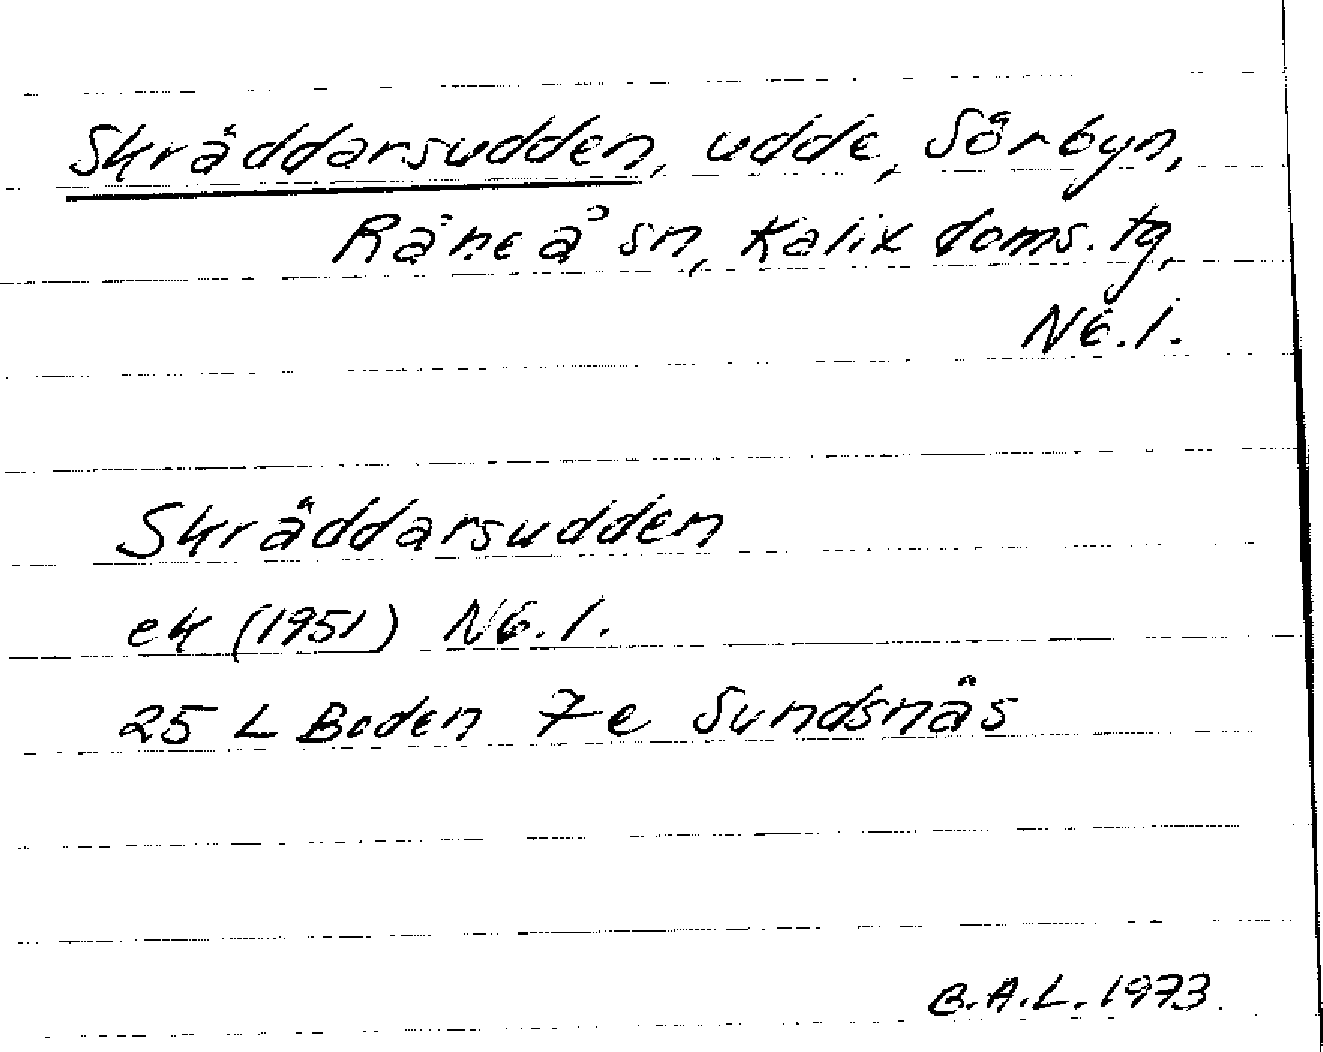 Skräddarsudden, udde, Sörbyn,
Råneå sn, Kalix doms. tg,
Nb.l.
Skräddarsudden
ek (1951) Nb.l.
25 L Boden 7e Sundsnäs
B.A.L. 1973.